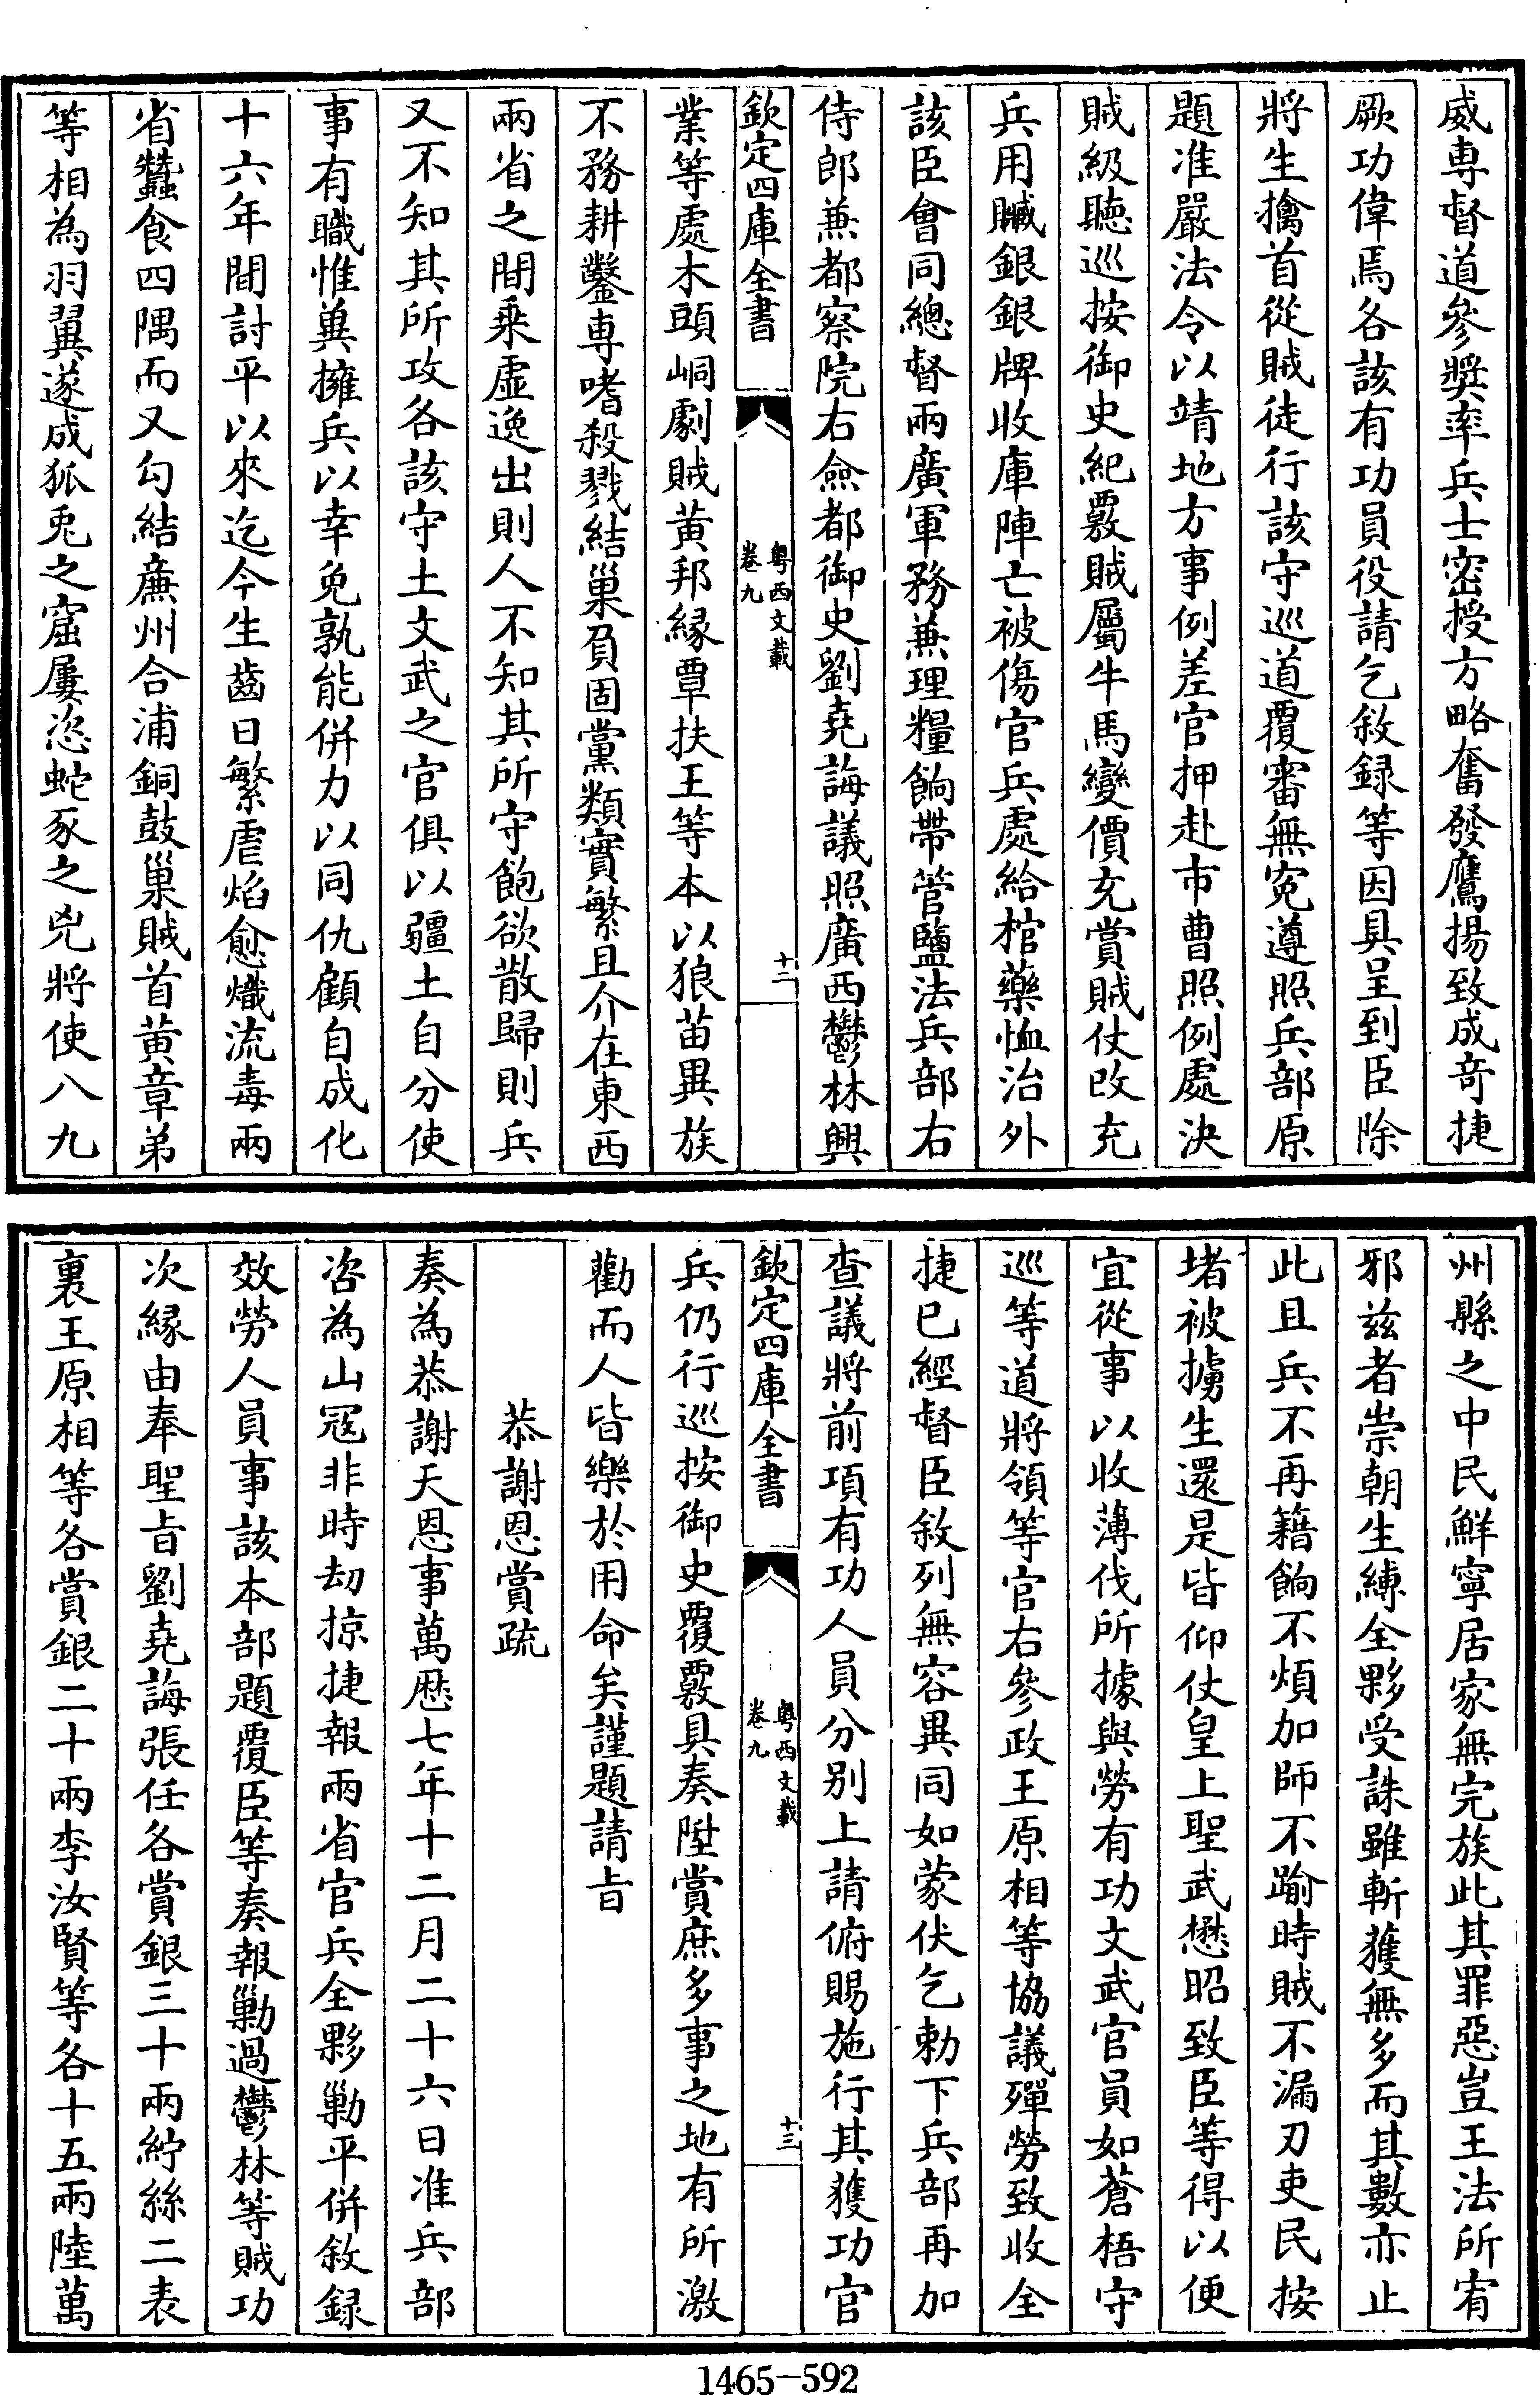 威專督道參奬率兵士密授方略奮發鷹揚致成竒捷
厥功偉焉各該有功員役請乞敘録等因具呈到臣除
將生擒首從賊徒行該守巡道覆審無寃遵照兵部原
題准嚴法令以靖地方事例差官押赴市曹照例處決
賊級聽巡按御史紀覈賊屬牛馬變價充賞賊仗改充
兵用贓銀銀牌收庫陣亡被傷官兵處給棺藥恤治外
該臣會同總督兩廣軍務兼理糧餉帶管鹽法兵部右
侍郎兼都察院右僉都御史劉堯誨議照廣西鬱林興
欽定四庫全書
粤西文載
卷九
十二
業等處木頭峒劇賊黃邦緣覃扶王等本以狼苗異族
不務耕鑿專嗜殺戮結巢負固黨類實繁且介在東西
兩省之間乗虛逸出則人不知其所守飽欲散歸則兵
又不知其所攻各該守土文武之官俱以疆土自分使
事有職惟巽擁兵以幸免孰能併力以同仇顧自成化
十六年間討平以來迄今生齒日繁虐焰愈熾流毒兩
省蠶食四隅而又勾結亷州合浦銅鼓巢賊首黃章弟
等相為羽翼遂成狐兎之窟屢恣蛇豕之兇將使八九
州縣之中民鮮寧居家無完族此其罪惡豈王法所宥
邪兹者崇朝生縛全夥受誅雖斬獲無多而其數亦止
此且兵不再籍餉不煩加師不踰時賊不漏刃吏民按
堵被擄生還是皆仰仗皇上聖武懋昭致臣等得以便
宜從事以收薄伐所據與勞有功文武官員如蒼梧守
巡等道將領等官右參政王原相等協議殫勞致收全
捷已經督臣敘列無容異同如蒙伏乞勅下兵部再加
查議將前項有功人員分別上請俯賜施行其獲功官
欽定四庫全書
粤西文載
卷九
十三
兵仍行巡按御史覆覈具奏陞賞庶多事之地有所激
勸而人皆樂於用命矣謹題請㫖
恭謝恩賞疏
奏為恭謝天恩事萬厯七年十二月二十六日准兵部
咨為山冦非時刼掠捷報兩省官兵全夥勦平併敘録
效勞人員事該本部題覆臣等奏報勦過鬱林等賊功
次緣由奉聖㫖劉堯誨張任各賞銀三十兩紵絲二表
裏王原相等各賞銀二十兩李汝賢等各十五兩陸萬
1465-592